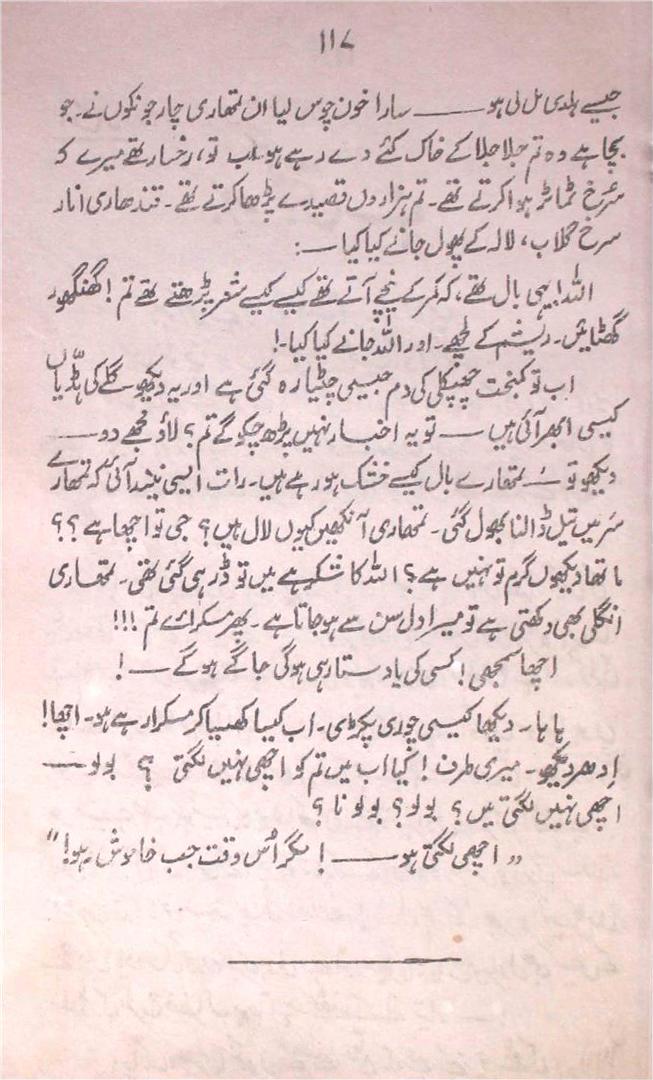 ۱۱۷
جیسے ہلدی مل لی ہو ــــــ سارا خون چوس لیا ان تمھاری چار جونکوں نے۔ جو
بچا ہے وہ تم جلا جلا کے خاک کئے دے رہے ہو۔ اب تو، رخسار تھے میرے کہ
سُرخ ٹماٹر ہوا کرتے تھے۔ تم ہزاروں قصیدے پڑھا کرتے تھے۔ قندھاری انار
سرخ گلاب، لالہ کے پھول جانے کیا کیا ــ:
اللہ! یہی بال تھے، کہ کمر کے نیچے آتے تھے کیسے کیسے شعر پڑھتے تھے تم! گھنگھور
گھٹائیں۔ ریشم کے لچھے۔ اور اللہ جانے کیا کیا۔!
اب تو کمبخت چھپکلی کی دم جیسی چٹیا رہ گئی ہے اور یہ دیکھو گلے کی ہڈیاں
کیسی ابھر آئی ہیں ــــ تو یہ اخبار نہیں پڑھ چکو گے تم؟ لاؤ مجھے دو ــــ
دیکھو تو ــ تمھارے بال کیسے خشک ہو رہے ہیں۔ رات ایسی نیند آئی کہ تمھارے
سر میں تیل ڈالنا بھول گئی۔ تمھاری آنکھیں کیوں لال ہیں؟ جی تو اچھا ہے؟؟
ماتھا دیکھوں گرم تو نہیں ہے؟ اللہ کا شکر ہے میں تو ڈر ہی گئی تھی۔ تمھاری
انگلی بھی دکھتی ہے تو میرا دل سن سے ہو جاتا ہے۔ پھر مسکرائے تم!!!
اچھا سمجھی! کسی کی یاد ستا رہی ہوگی جاگے ہوگے ــــ!
ہا ہا۔ دیکھا کیسی چوری پکڑی۔ اب کیسا کھسیا کر مسکرا رہے ہو۔ اچھا!
اِدھر دیکھو۔ میری طرف! کیا اب میں تم کو اچھی نہیں لگتی ؟ بولو ــــ
اچھی نہیں لگتی میں؟ بولو؟ بولو نا؟
„اچھی لگتی ہو ــــــ! مگر اُس وقت جب خاموش رہو!"